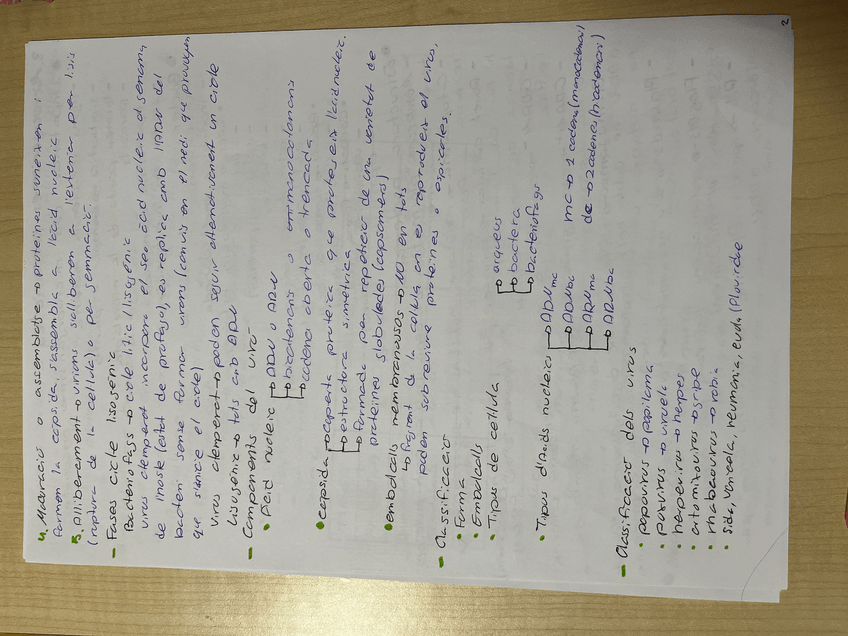 4. Maduració o assemblatge → proteïnes s'uneixen i
formen la capsida, s'assembla a l'àcid nucleic
5. Alliberament → virions s'alliberen a l'exterior per lisis
(ruptura de la cel·lula) o per gemmació.
- Fases cicle lisogènic
Bacteriòfags → cicle lític / lisogènic
virus atemperat incorpora el seu àcid nucleic al genoma
de l'hoste (estat de profag), es replica amb l'ADN del
bacteri sense formar virions (canvis en el medi que provoquen
que s'inicie el cicle)
virus atemperat → poden seguir alternativament un cicle
lisogènic → tots amb ADN
- Components del virió
• Àcid nucleic → ADN o ARN
→ bicatenaris o monocatenaris
→ cadena oberta o trencada
• capsida → coberta proteica que protegeix l'àcid nucleic.
→ estructura simètrica
→ formada per repetició de una varietat de
proteïnes globulades (capsomers)
• embolcalls membranosos → NO en tots
→ fragment de la cèl·lula on es reprodueix el virus,
poden sobreviure proteïnes o espícules.
- Classificació
• Forma
• Embolcalls
• Tipus de cèl·lula → arqueus
→ bactera
→ bacteriofags
• Tipus d'àcids nucleics → ADNmc mc → 1 cadena (monocadenari)
→ ADNbc dc → 2 cadenes (bicadenari)
→ ARNmc
→ ARNbc
- Classificació dels virus
• papovirus → papiloma
• poxvirus → viruela
• herpesvirus → herpes
• ortomixovirus → gripe
• rhabdovirus → rabia
• sida, varicela, neumonia,
2